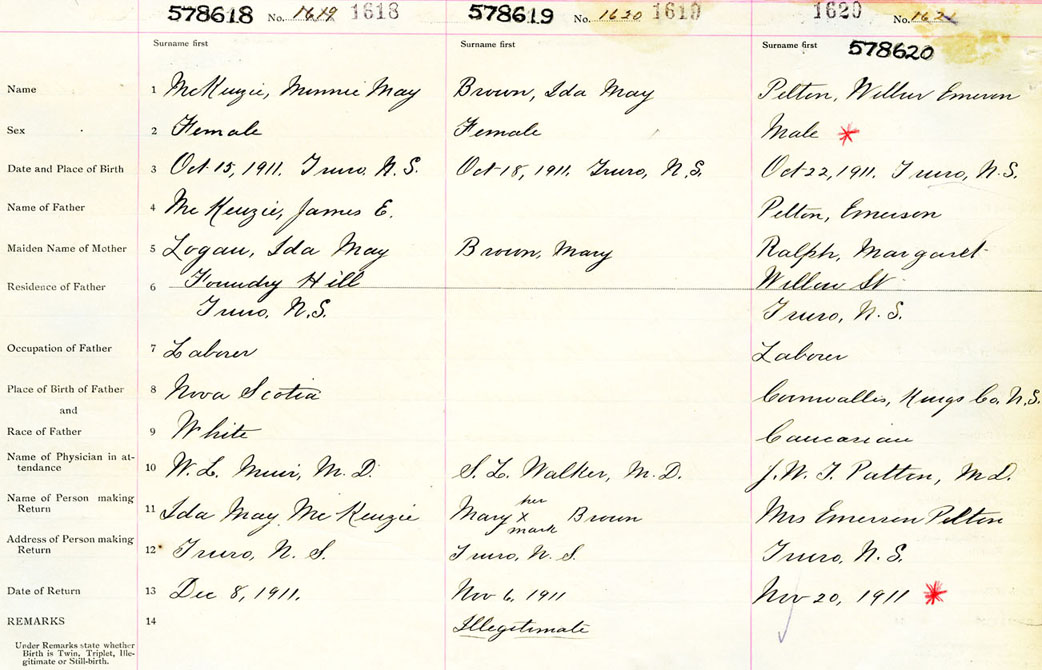 578618 No. 1619 1618 578619 No. 1620 1619 1620 No. 1621
Surname first Surname first Surname first 578620
Name 1 McKenzie, Minnie May Brown, Ida May Pelton, Wilbur Emerson
Sex 2 Female Female Male *
Date and Place of Birth 3 Oct 15, 1911. Truro. N.S. Oct 18, 1911. Truro, N.S. Oct 22, 1911. Truro, N.S.
Name of Father 4 McKenzie, James E. Pelton, Emerson
Maiden Name of Mother 5 Logan, Ida May Brown, Mary Ralph, Margaret
Residence of Father 6 Foundry Hill Willow St
Truro, N.S. Truro, N.S.
Occupation of Father 7 Laborer Laborer
Place of Birth of Father 8 Nova Scotia Cornwallis, Kings Co. N.S.
and
Race of Father 9 White Caucasian
Name of Physician in at-
tendance 10 W. L. Muir, M.D. S. L. Walker, M.D. J. W. T. Patton, M.D.
Name of Person making her
Return 11 Ida May McKenzie Mary X Brown Mrs Emerson Pelton
mark
Address of Person making
Return 12 Truro, N.S. Truro, N.S Truro, N.S.
Date of Return 13 Dec 8, 1911. Nov 6, 1911 Nov 20, 1911 *
REMARKS 14 Illegitimate
Under Remarks state whether
Birth is Twin, Triplet, Ille-
gitimate or Still-birth.